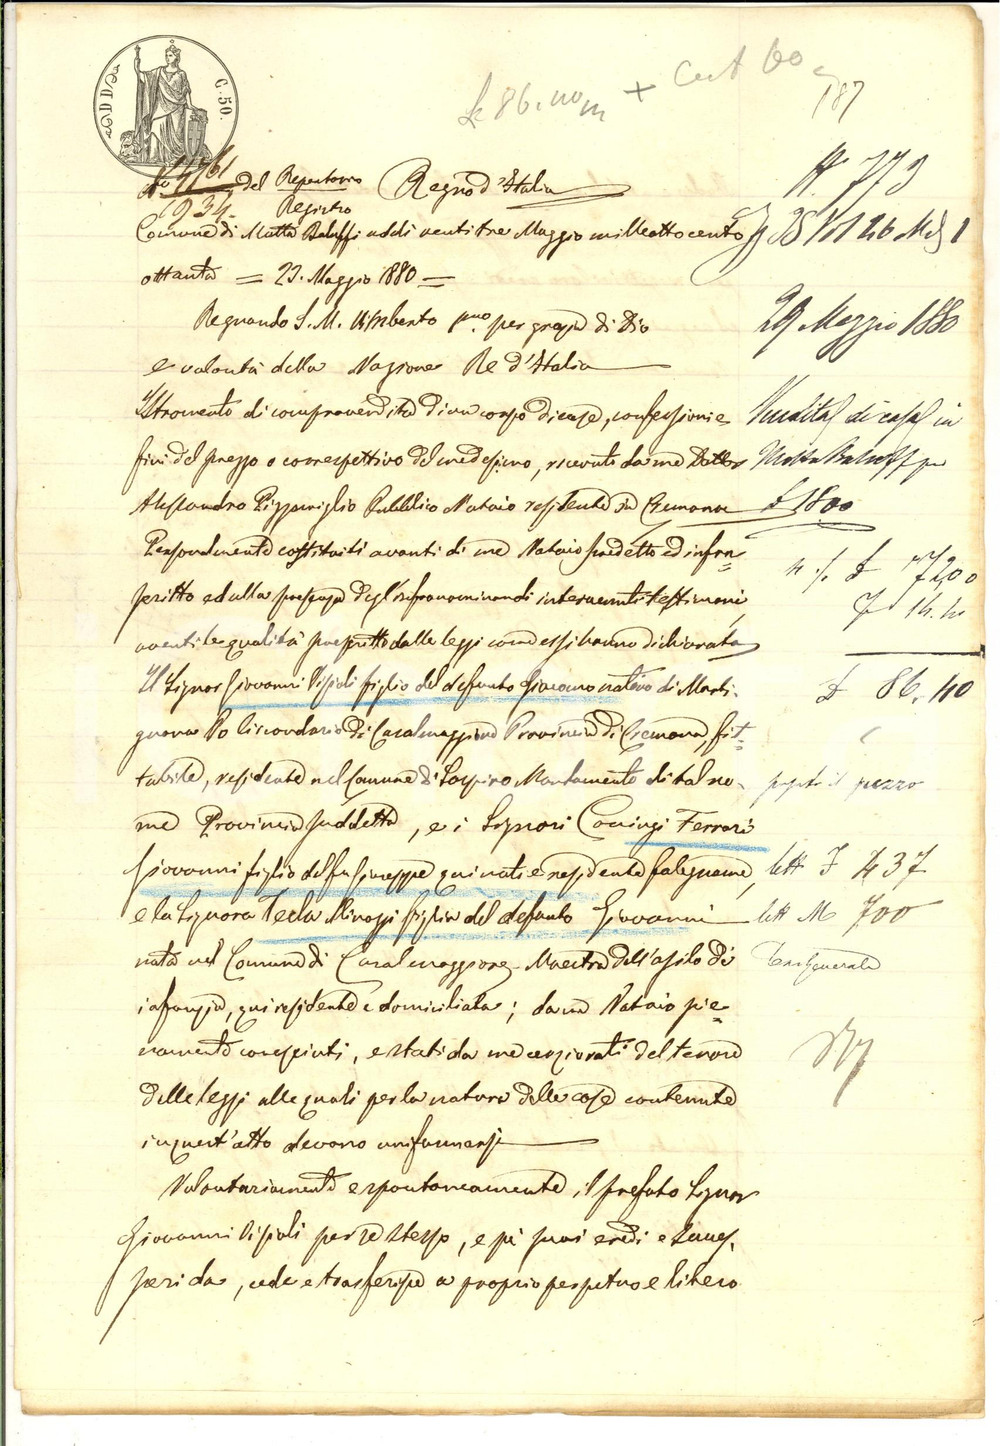 C. 50.
£ 86. 40
187
N° 4761 del Repertorio Regno d'Italia
934 Registro
N. 773
Comune di Motta Baluffi addì ventitre Maggio mille ottocento
ottanta = 23. Maggio 1880 =
29 Maggio 1880
Regnando S. M. Umberto p.mo per grazia di Dio
e volontà della Nazione Re d'Italia
Istromento di compravendita d'un corpo di case, confessione e
Vendita di case in
fini del prezzo o correspettivo del medesimo, ricevuto da me Dottor
Motta Baluffi per
Alessandro Pizzamiglio Pubblico Notaio residente in Cremona
£ 1800
Personalmente costituiti avanti di me Notaio predetto ed infra=
£ 7200
scritto ed alla presenza degl'infranominandi intervenuti testimoni
14.40
aventi le qualità prescritte dalle leggi come essi hanno dichiarato
Il Signor Giovanni Visioli figlio del defunto Giacomo nativo di Marti-
£ 86.40
gnana Po Circondario di Casalmaggiore Provincia di Cremona, fit-
tabile, residente nel Comune di Sospiro Mandamento di tal no-
prezzo
me Provincia suddetta, e i Signori Coniugi Ferrari
Giovanni figlio del fu Giuseppe qui nato e residente falegname,
lett F 437
e la Signora Tecla Minozzi figlia del defunto Giovanni
lett M 700
nata nel Comune di Casalmaggiore Maestra dell'asilo di
infanzia, qui residente e domiciliata; da me Notaio pie=
namente conosciuti, e stati da me cerziorati del tenore
delle leggi alle quali per la natura delle cose contenute
in quest'atto devono uniformarsi
Volontariamente e spontaneamente, il prefato Signor
Giovanni Visioli per se stesso, e pe' suoi eredi e succes-
sori da, cede e trasferisce a proprio perpetuo e libero